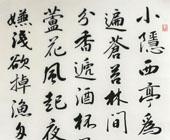 小隱西亭為
遍蒼苔林間
分泉遞酒杯
蘆花風起夜
嫌淺欲棹漁